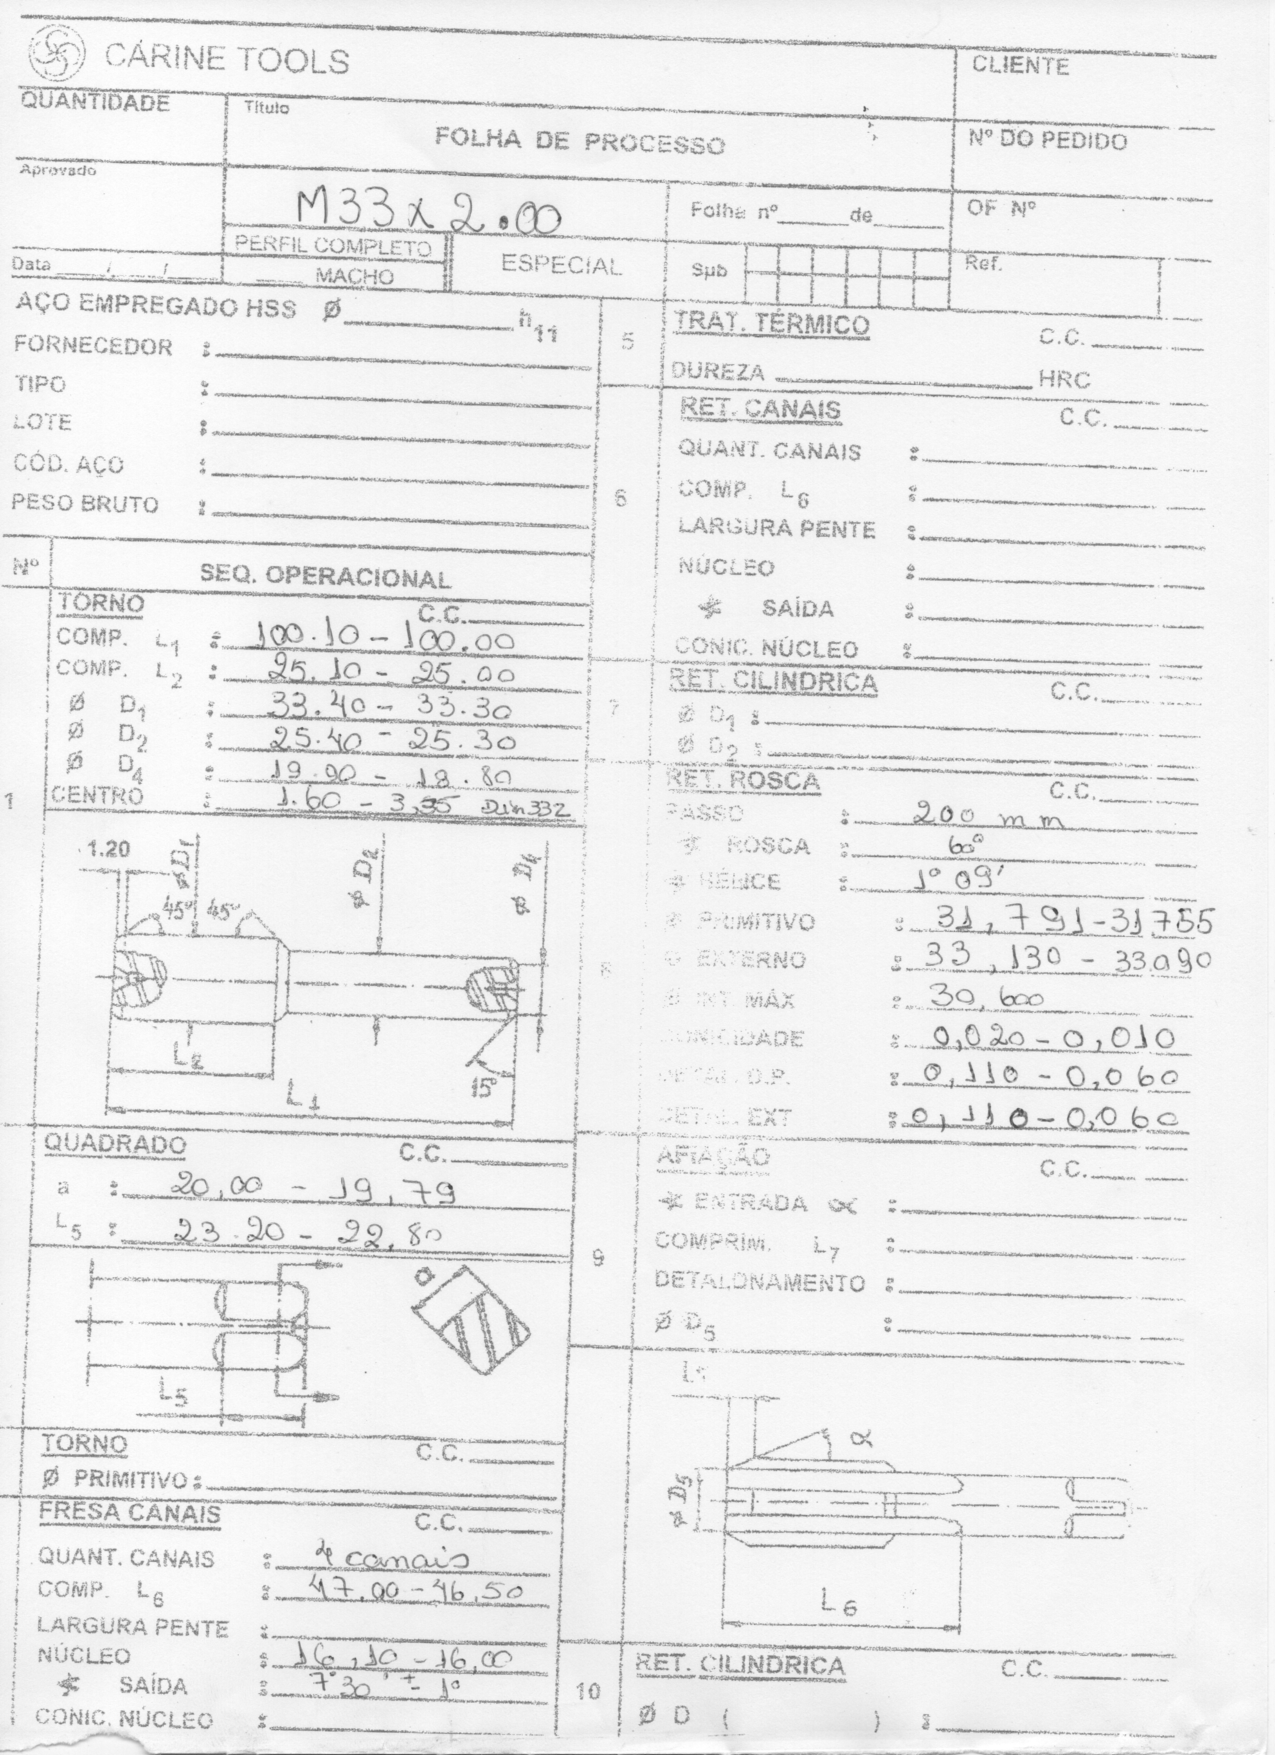 CARINE TOOLS
CLIENTE
QUANTIDADE
Título
FOLHA DE PROCESSO
Nº DO PEDIDO
Aprovado
M33 x 2.00
Folha nº ____ de ____
OF Nº
PERFIL COMPLETO
MACHO
ESPECIAL
Sub
Ref.
Data ___/___/___
AÇO EMPREGADO HSS Ø ____ h11
FORNECEDOR :
TIPO :
LOTE :
CÓD. AÇO :
PESO BRUTO :
Nº
SEQ. OPERACIONAL
1
TORNO C.C.
COMP. L1 : 100.10 - 100.00
COMP. L2 : 25.10 - 25.00
Ø D1 : 33.40 - 33.30
Ø D2 : 25.40 - 25.30
Ø D4 : 19.00 - 18.80
CENTRO : 1.60 - 3,35 Din 332
1.20
Ø D1
45° 45°
Ø D2
Ø D4
L2
L1
15°
QUADRADO C.C.
a : 20,00 - 19,79
L5 : 23.20 - 22,80
a
L5
TORNO C.C.
Ø PRIMITIVO :
FRESA CANAIS C.C.
QUANT. CANAIS : 4 canais
COMP. L6 : 47,00 - 46,50
LARGURA PENTE :
NÚCLEO : 16,10 - 16,00
SAÍDA : 7°30' ± 1°
CONIC. NÚCLEO :
5
TRAT. TÉRMICO C.C.
DUREZA ____ HRC
6
RET. CANAIS C.C.
QUANT. CANAIS :
COMP. L6 :
LARGURA PENTE :
NÚCLEO :
SAÍDA :
CONIC. NÚCLEO :
7
RET. CILINDRICA C.C.
Ø D1 :
Ø D2 :
8
RET. ROSCA C.C.
PASSO : 200 mm
ROSCA : 60°
HÉLICE : 1° 09'
Ø PRIMITIVO : 31,791 - 31755
Ø EXTERNO : 33,130 - 33.090
Ø INT. MÁX : 30,600
CONICIDADE : 0,020 - 0,010
DETAL. D.P. : 0,110 - 0,060
DETAL. EXT : 0,110 - 0,060
9
AFIAÇÃO C.C.
ENTRADA α :
COMPRIM. L7 :
DETALONAMENTO :
Ø D5 :
α
Ø D5
L6
10
RET. CILÍNDRICA C.C.
Ø D ( ) :